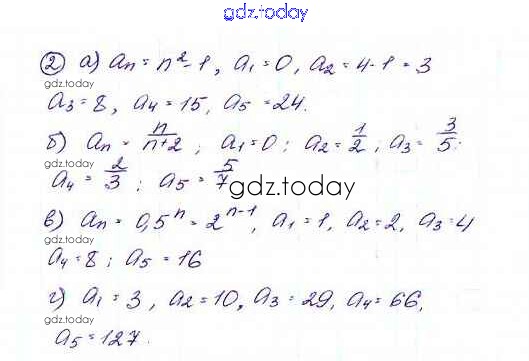 gdz.today
② а) aₙ = n² - 1, a₁ = 0, a₂ = 4-1 = 3
gdz.today
a₃ = 8, a₄ = 15, a₅ = 24.
gdz.today
б) aₙ = n/n+2; a₁ = 0; a₂ = 1/2; a₃ = 3/5;
gdz.today
a₄ = 2/3; a₅ = 5/7
gdz.today
в) aₙ = 0,5ⁿ = 2ⁿ⁻¹, a₁ = 1, a₂ = 2, a₃ = 4
gdz.today
a₄ = 8; a₅ = 16
г) a₁ = 3, a₂ = 10, a₃ = 29, a₄ = 66,
gdz.today
a₅ = 127.